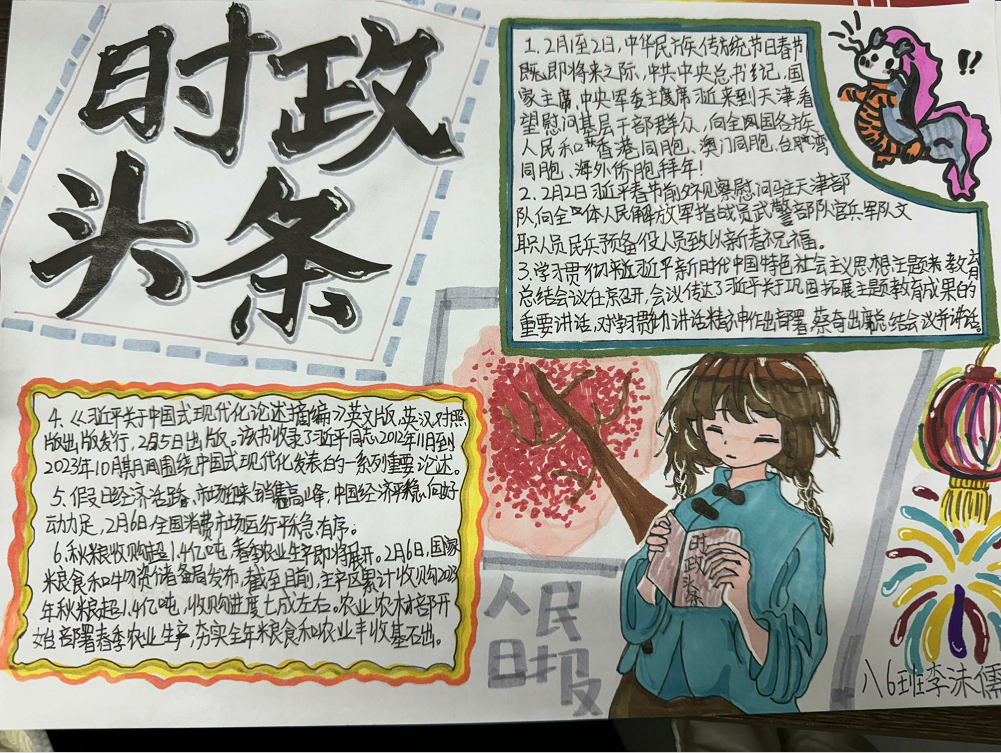 时政
头条
1.2月1至2日,中华民族传统节日春节
既即将来之际,中共中央总书纪,国
家主席,中央军委主度席习近来到天津看
望慰问基层干部群众,向全国各族
人民和香港同胞、澳门同胞、台湾
同胞、海外侨胞拜年!
2.2月2日习近平春节前夕视察慰问驻天津部
队,向全体人民解放军指战员武警部队官兵军队文
职人员民兵预备役人员致以新春祝福。
3.学习贯彻习近平新时代中国特色社会主义思想主题教育
总结会议在京召开,会议传达了习近平关于巩固拓展主题教育成果的
重要讲话,对学习贯彻讲话精神作出部署,蔡奇出席总结会议并讲话
4.《习近平关于中国式现代化论述摘编》英文版,英汉对照
版出版发行,2月5日出版。该书收录了习近平同志2012年11月到
2023年10月期间围绕中国式现代化发表的一系列重要论述。
5.假日经济活跃,市场迎来销售高峰,中国经济平稳,向好
动力足,2月6日,全国消费市场运行平稳有序。
6.秋粮收购超1.4亿吨,春耕农业生产即将展开。2月6日,国家
粮食和物资储备局发布,截至目前,主产区累计收购2023
年秋粮超1.4亿吨,收购进度七成左右。农业农村部开
始部署春季农业生产,夯实全年粮食和农业丰收基石出。
!!
时政头条
人民
日报
八6班李沫儒